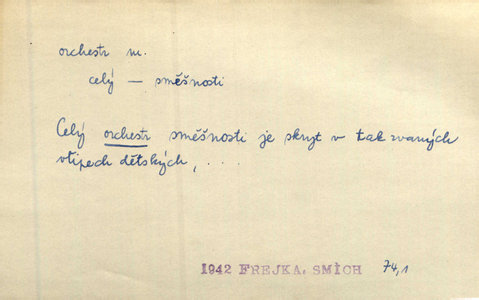 orchestr m.
celý — směšnosti
Celý orchestr směšnosti je skryt v tak zvaných
vtipech dětských, . . .
1942 FREJKA, SMÍCH 74,1